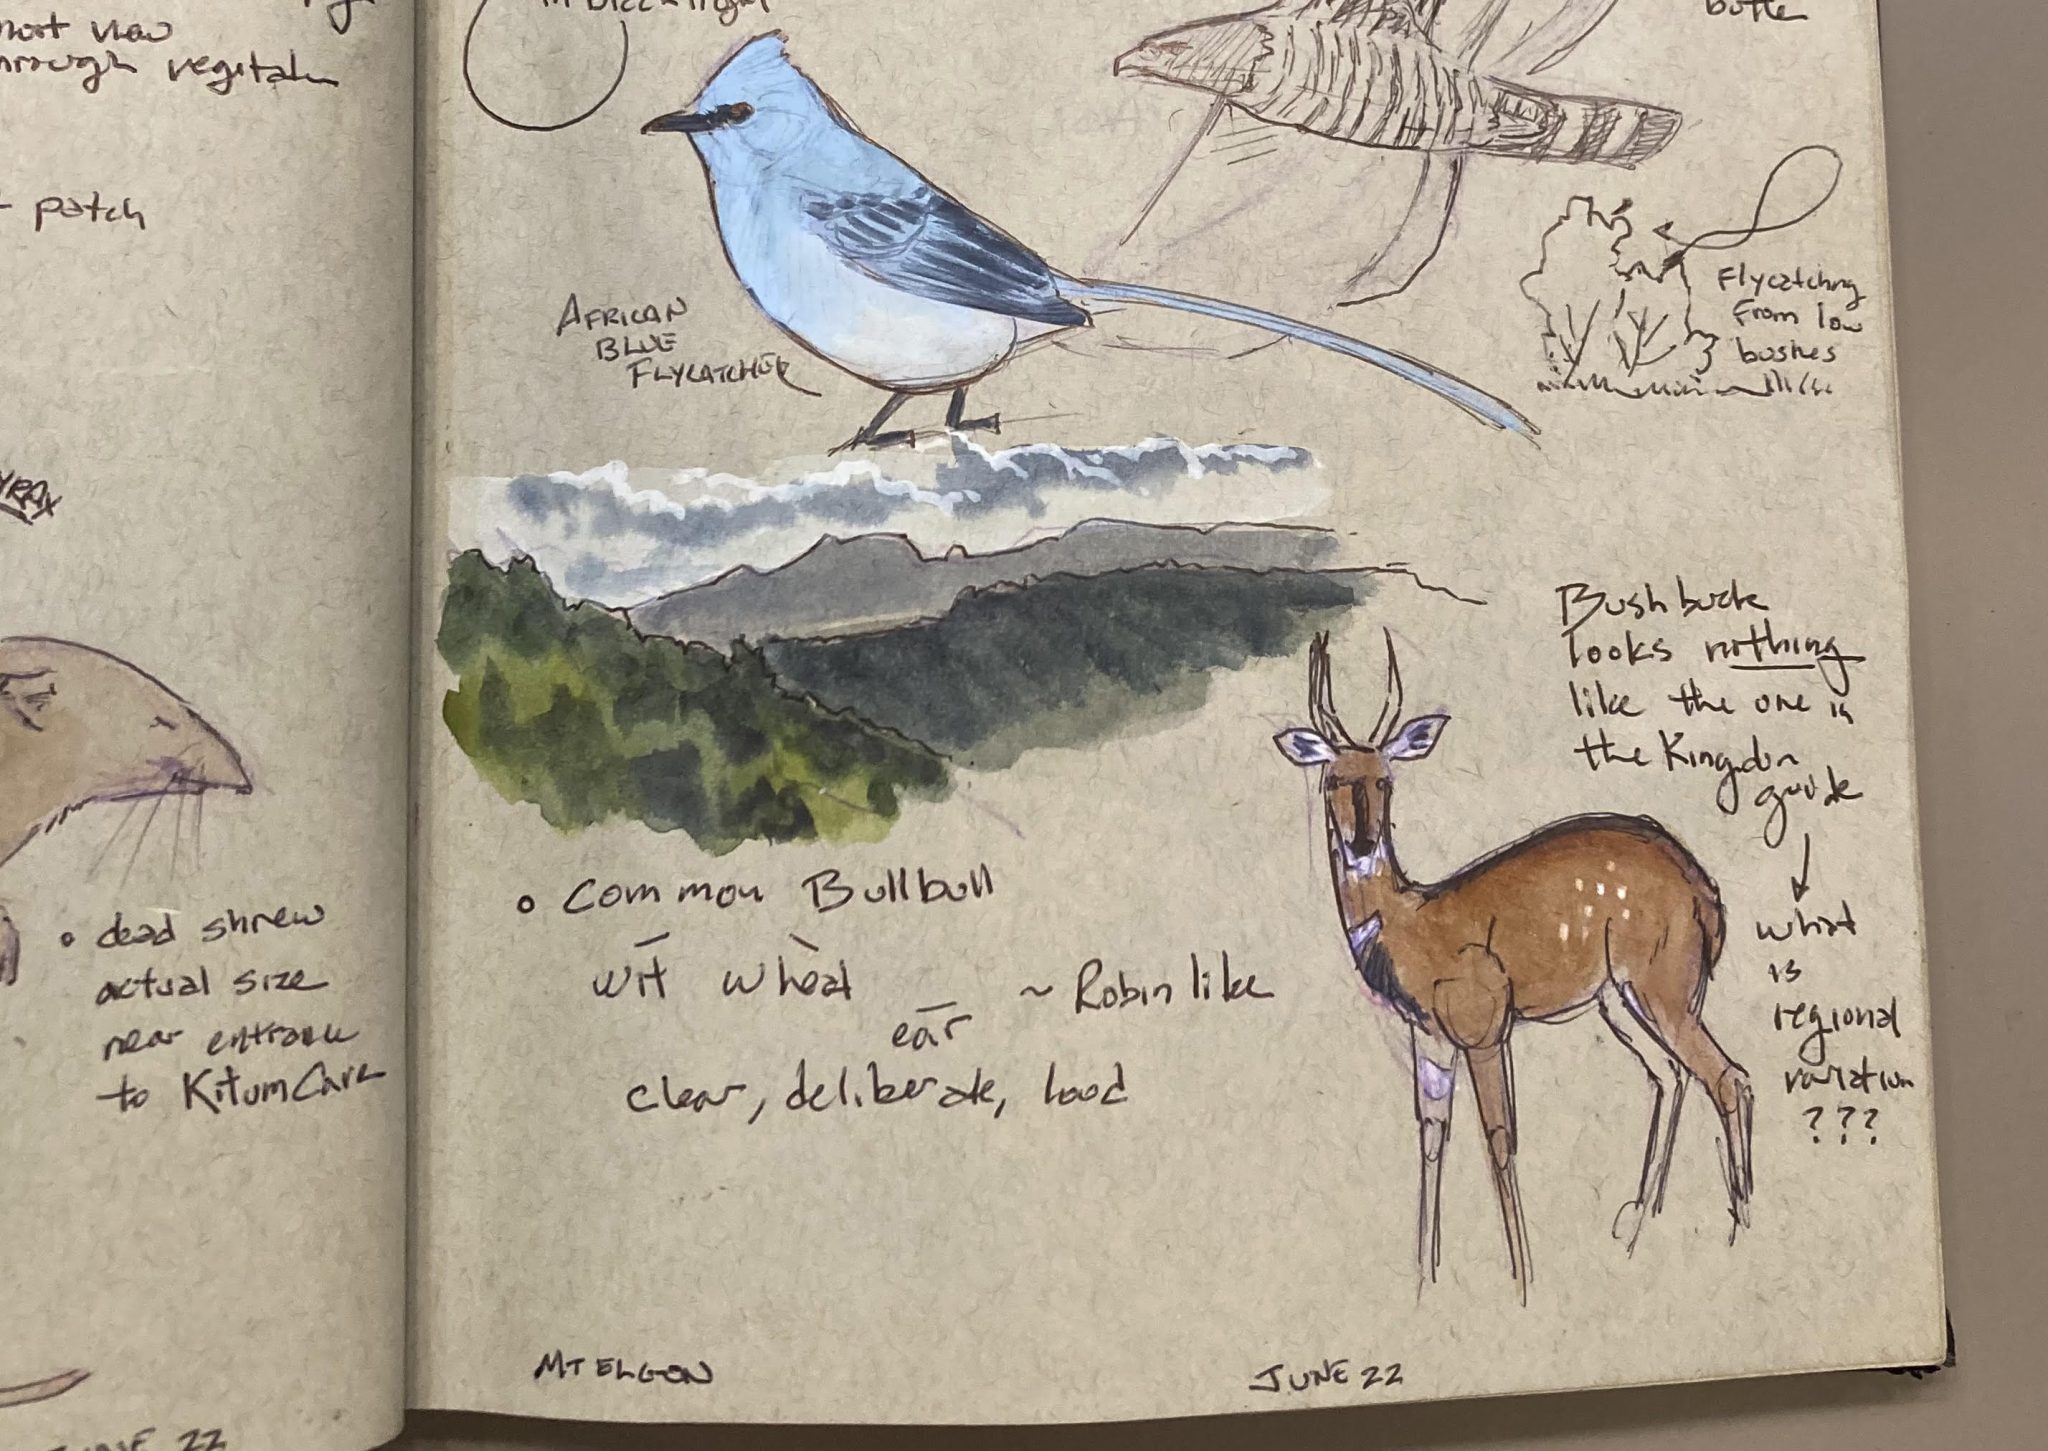 view
vegetat
patch
dead shrew
actual size
near entrance
to Kitum Cave
JUNE 22
AFRICAN
BLUE
FLYCATCHER
Flycatching
From low
bushes
Bushbuck
looks nothing
like the one in
the Kingdon
guide
what
is
regional
variation
???
Common Bullbull
wit wheat
ear
~ Robin like
clear, deliberate, loud
MT ELGON
JUNE 22